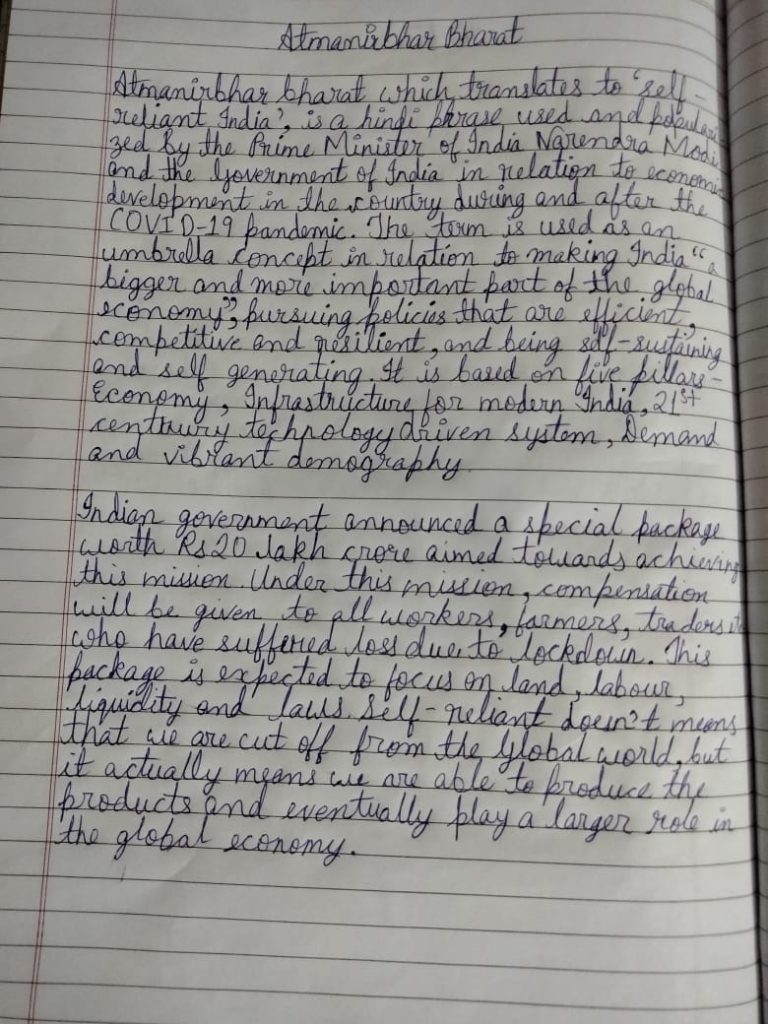 Atmanirbhar Bharat
Atmanirbhar bharat which translates to 'self-
reliant India', is a hindi phrase used and populari
zed by the Prime Minister of India Narendra Modi
and the Government of India in relation to economic
development in the country during and after the
COVID-19 pandemic. The term is used as an
umbrella concept in relation to making India "a
bigger and more important part of the global
economy", pursuing policies that are efficient,
competitive and resilient, and being self-sustaining
and self generating. It is based on five pillars-
Economy, Infrastructure for modern India, 21st
centhury technology driven system, Demand
and vibrant demography.
Indian government announced a special package
worth Rs 20 lakh crore aimed towards achieving
this mission. Under this mission, compensation
will be given to all workers, farmers, traders etc
who have suffered loss due to lockdown. This
package is expected to focus on land, labour,
liquidity and laws. Self-reliant doesn't means
that we are cut off from the Global world, but
it actually means we are able to produce the
products and eventually play a larger role in
the global economy.